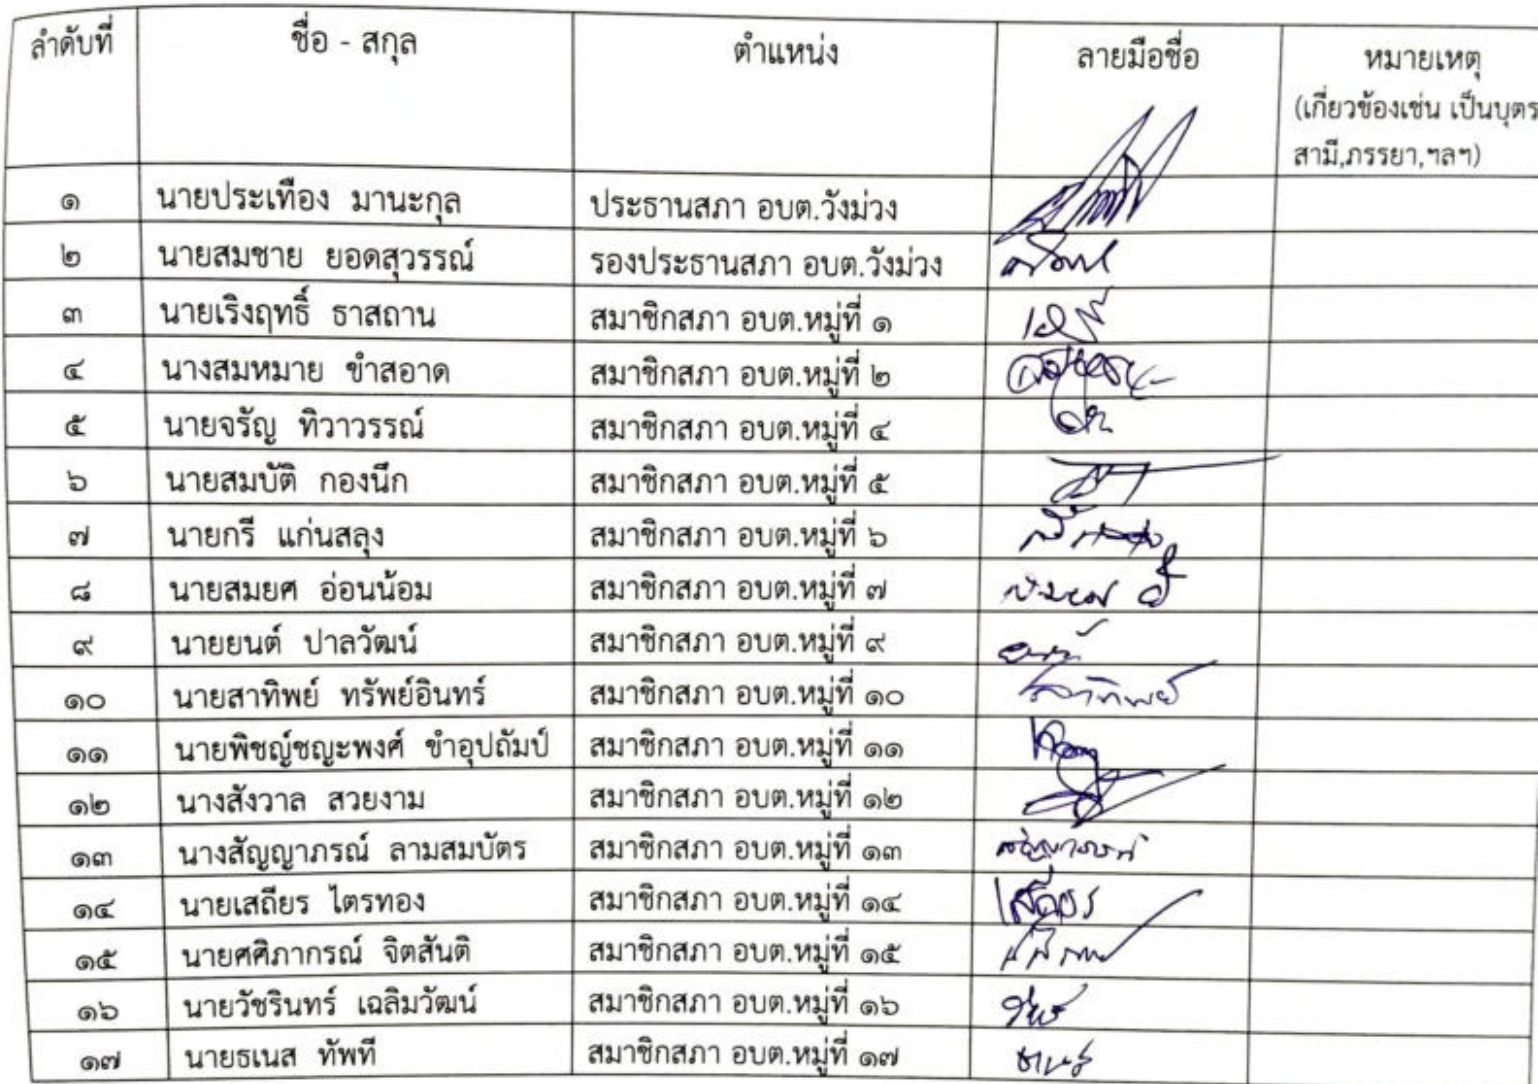 ลำดับที่ ชื่อ - สกุล ตำแหน่ง ลายมือชื่อ หมายเหตุ
(เกี่ยวข้องเช่น เป็นบุตร
สามี,ภรรยา,ฯลฯ)
๑ นายประเทือง มานะกุล ประธานสภา อบต.วังม่วง
๒ นายสมชาย ยอดสุวรรณ์ รองประธานสภา อบต.วังม่วง
๓ นายเริงฤทธิ์ ธาสถาน สมาชิกสภา อบต.หมู่ที่ ๑
๔ นางสมหมาย ขำสอาด สมาชิกสภา อบต.หมู่ที่ ๒
๕ นายจรัญ ทิวาวรรณ์ สมาชิกสภา อบต.หมู่ที่ ๔
๖ นายสมบัติ กองนึก สมาชิกสภา อบต.หมู่ที่ ๕
๗ นายกรี แก่นสลุง สมาชิกสภา อบต.หมู่ที่ ๖
๘ นายสมยศ อ่อนน้อม สมาชิกสภา อบต.หมู่ที่ ๗
๙ นายยนต์ ปาลวัฒน์ สมาชิกสภา อบต.หมู่ที่ ๙
๑๐ นายสาทิพย์ ทรัพย์อินทร์ สมาชิกสภา อบต.หมู่ที่ ๑๐ สาทิพย์
๑๑ นายพิชญ์ชญะพงศ์ ขำอุปถัมป์ สมาชิกสภา อบต.หมู่ที่ ๑๑
๑๒ นางสังวาล สวยงาม สมาชิกสภา อบต.หมู่ที่ ๑๒
๑๓ นางสัญญาภรณ์ ลามสมบัตร สมาชิกสภา อบต.หมู่ที่ ๑๓ สัญญาภรณ์
๑๔ นายเสถียร ไตรทอง สมาชิกสภา อบต.หมู่ที่ ๑๔ เสถียร
๑๕ นายศศิภากรณ์ จิตสันติ สมาชิกสภา อบต.หมู่ที่ ๑๕
๑๖ นายวัชรินทร์ เฉลิมวัฒน์ สมาชิกสภา อบต.หมู่ที่ ๑๖
๑๗ นายธเนส ทัพที สมาชิกสภา อบต.หมู่ที่ ๑๗